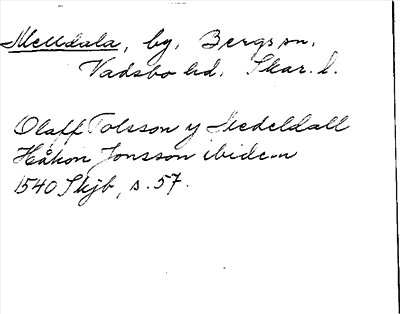 Melldala, by, Bergs sn,
Vadsbo hd, Skar. l.
Olaff Tolsson y Medeldall
Håkon Jonsson ibidem
1540 Skjb, s. 57.